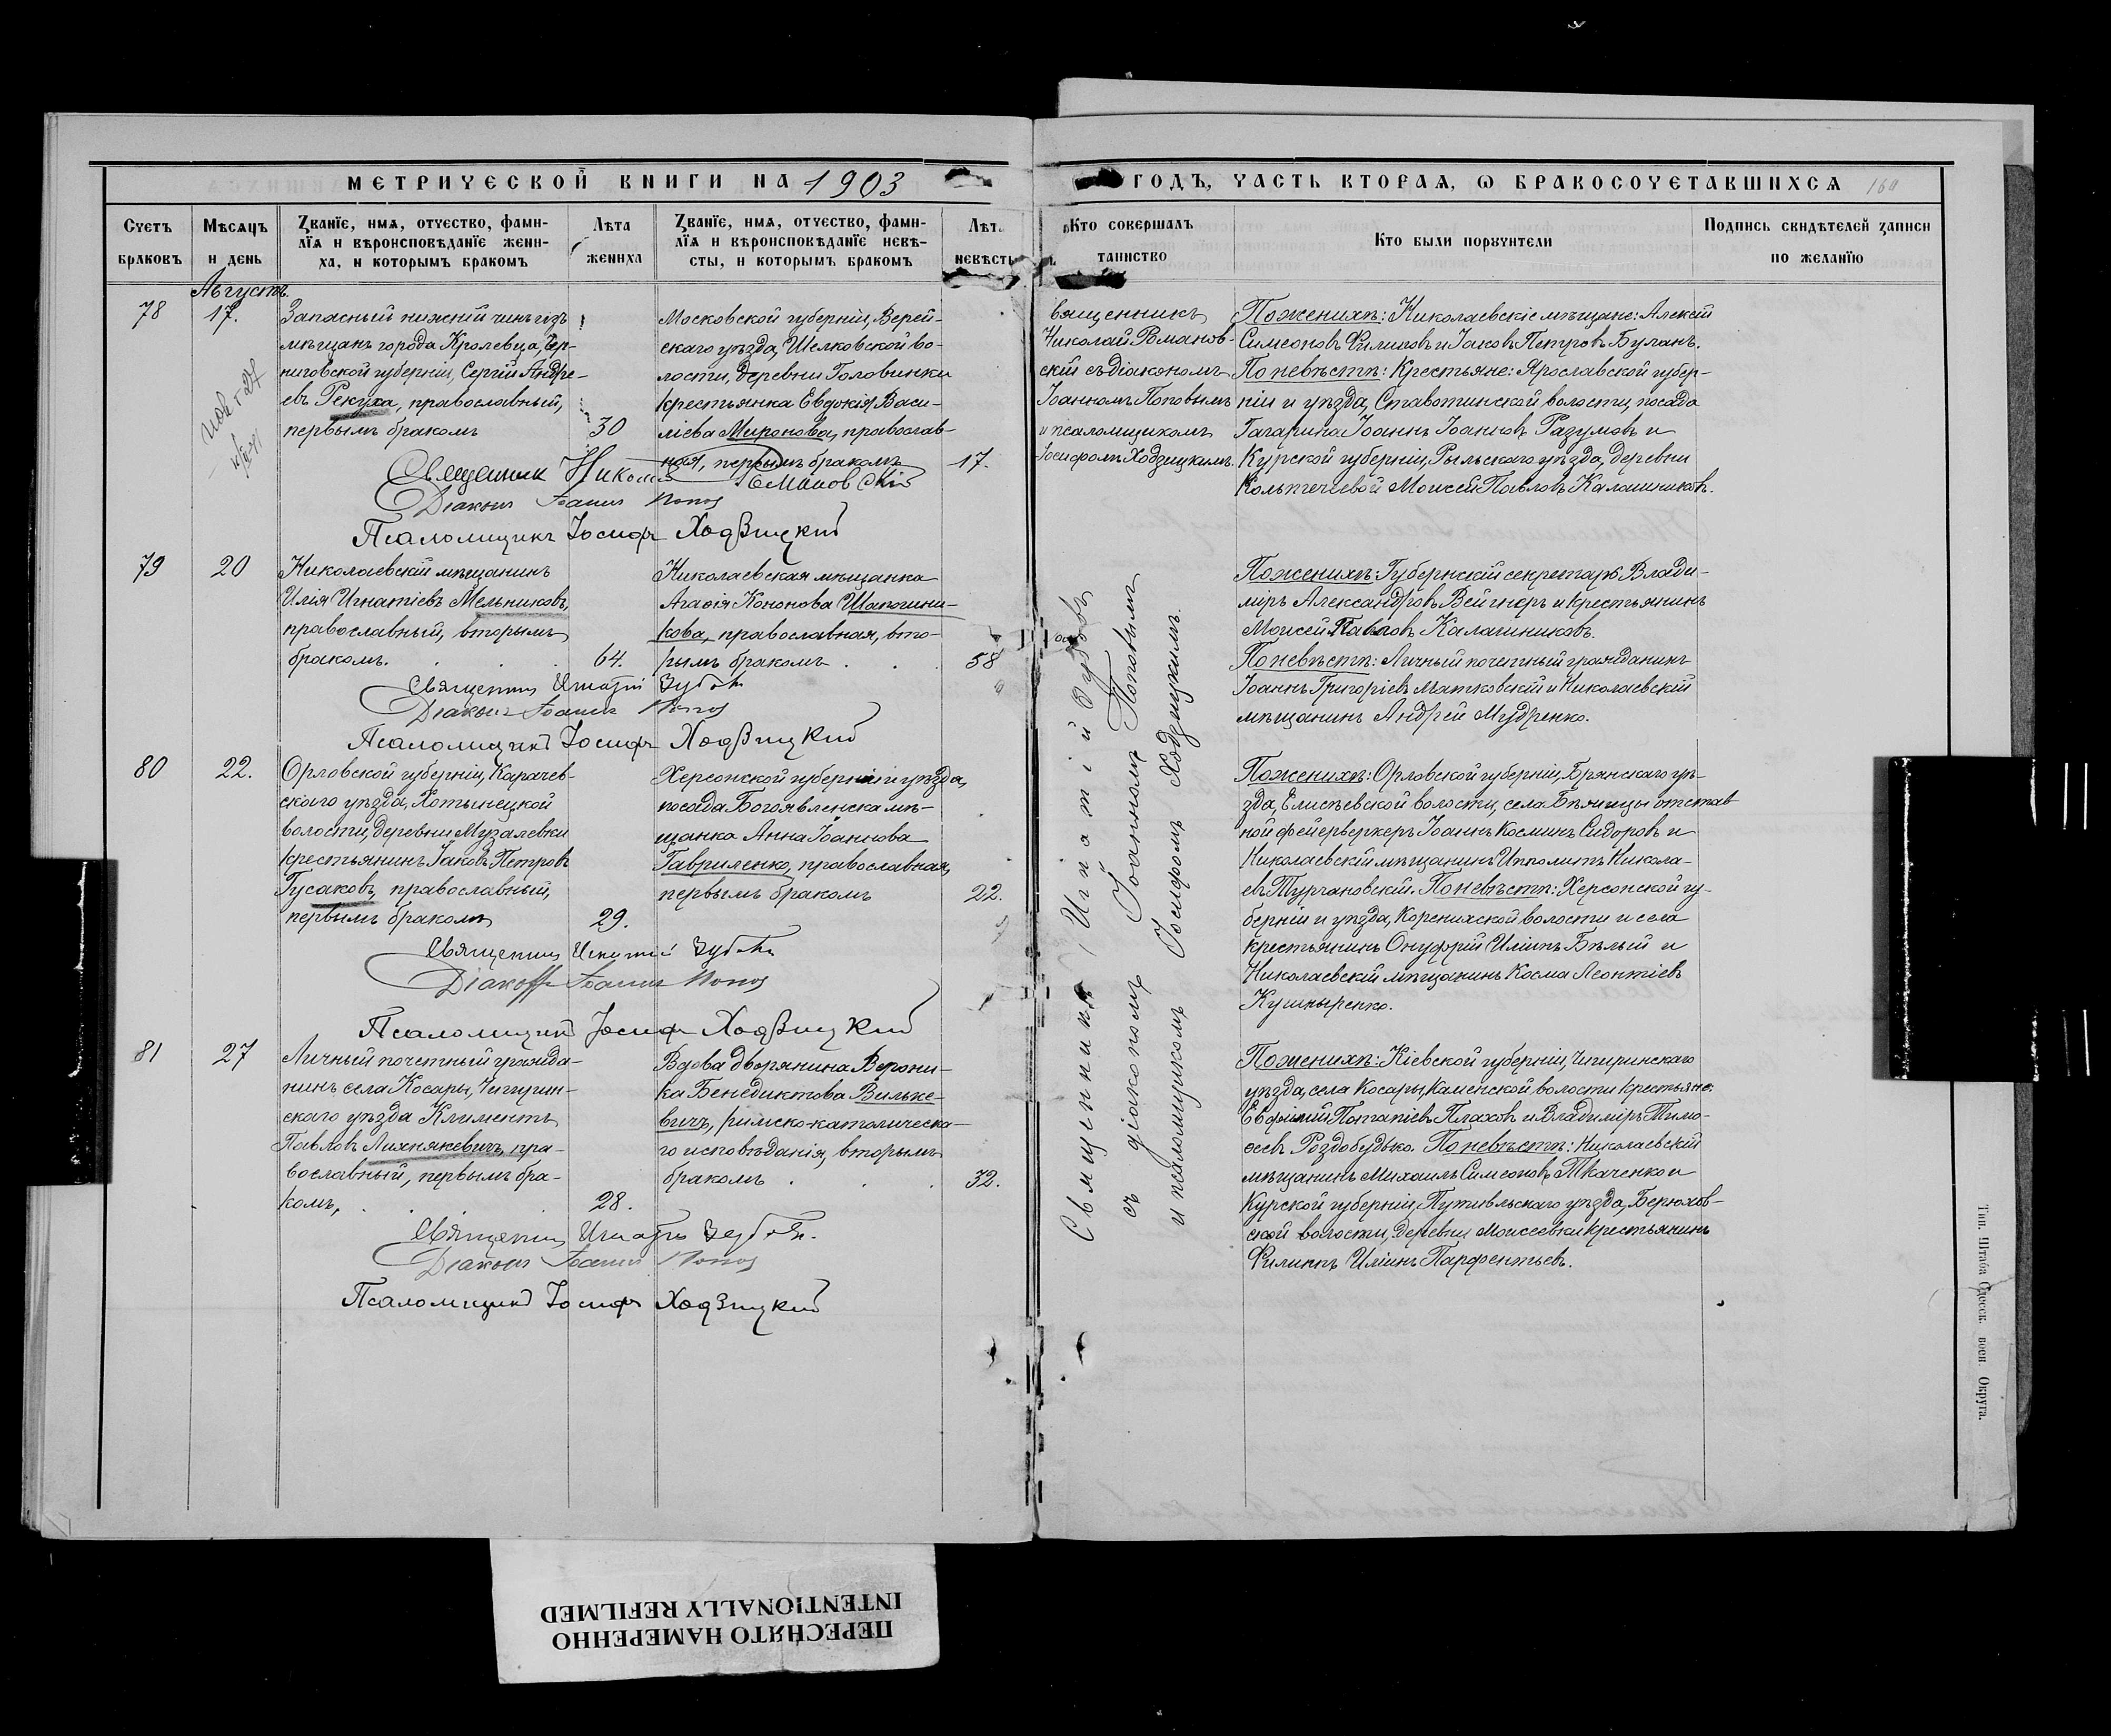 МЕТРИЧЕСКОЙ КНИГИ НА 1903
ГОДЪ, ЧАСТЬ ВТОРАѦ, Ѡ БРАКОСОЧЕТАВШИХСѦ 160
Счетъ браковъ
Мѣсѧцъ и день
Званїе, имѧ, отчество, фами-
лїѧ и вѣроисповѣданїе жени-
ха, и которымъ бракомъ
Лѣта жениха
Званїе, имѧ, отчество, фами-
лїѧ и вѣроисповѣданїе невѣ-
сты, и которымъ бракомъ
Лѣт
невѣсты
Кто совершалъ
таинство
Кто были порꙋчители
Подпись свидѣтелей записи
по желанїю
Августъ.
78
17.
Запасный нижній чинъ изъ
мѣщанъ города Кролевца, Чер-
ниговской губерніи, Сергій Андре-
евъ Рекуха, православный,
первымъ бракомъ
30
Московской губерніи, Верей-
скаго уѣзда, Шелковской во-
лости, деревни Головинки
крестьянка Евдокія Васи-
ліева Миронова, православ-
ная, первымъ бракомъ
17.
вященникъ
Николай Романов-
скій съ діакономъ
Іоанномъ Поповымъ
и псаломщикомъ
Іосифомъ Ходзицкимъ.
По женихѣ: Николаевскіе мѣщане: Алексій
Симеоновъ Филиповъ и Іаковъ Петровъ Буланъ.
По невѣстѣ: Крестьяне: Ярославской губер-
ніи и уѣзда, Ставотинской волости, посада
Гагарина Іоаннъ Іоанновъ Разумовъ и
Курской губерніи, Рыльскаго уѣзда, деревни
Моисей Павловъ Калашниковъ.
Священник Николай Романовскій
Діаконъ Іоаннъ Поповъ
Псаломщикъ Іосифъ Ходзицкій
79
20
Николаевскій мѣщанинъ
Илія Игнатіевъ Мельниковъ,
православный, вторымъ
бракомъ.
64.
Николаевская мѣщанка
Агафія Кононова Шапошни-
кова, православная, вто-
рымъ бракомъ
58
По женихѣ: Губернскій секретарь Влади-
міръ Александровъ Вейгнеръ и крестьянинъ
Моисей Павловъ Калашниковъ.
По невѣстѣ: Личный почетный гражданинъ
Іоаннъ Григоріевъ Матковскій и Николаевскій
мѣщанинъ Андрей Мудренко.
Священникъ Игнатій Зубовъ
Діаконъ Іоаннъ Поповъ
Псаломщикъ Іосифъ Ходзицкій
80
22.
Орловской губерніи, Карачев-
скаго уѣзда, Хотынецкой
волости, деревни Музалевки
крестьянинъ Іаковъ Петровъ
Гусаковъ, православный,
первымъ бракомъ
29.
Херсонской губерніи и уѣзда,
посада Богоявленска мѣ-
щанка Анна Іоаннова
Гавриленко, православная,
первымъ бракомъ
22.
По женихѣ: Орловской губерніи, Брянскаго уѣ-
зда, Елисѣевской волости, села отстав
ной фейерверкеръ Іоаннъ Косминъ Сидоровъ и
Николаевскій мѣщанинъ Ипполитъ Никола-
евъ Турчановскій. По невѣстѣ: Херсонской гу-
берніи и уѣзда, Коренихской волости и села
крестьянинъ Онуфрій Иліинъ Бѣлый и
Николаевскій мѣщанинъ Косма Леонтіевъ
Кушныренко.
Священникъ Игнатій Зубовъ
Діаконъ Іоаннъ Поповъ
Псаломщикъ Іосифъ Ходзицкій
81
27
Личный почетный гражда-
нинъ села Косары, Чигирин-
скаго уѣзда Климентъ
Павловъ Лихнякевичъ, пра-
вославный, первымъ бра-
комъ,
28.
Вдова дворянина Верони-
ка Бенедиктова Вильке-
вичъ, римско-католическа-
го исповѣданія, вторымъ
бракомъ
32.
По женихѣ: Кіевской губерніи, Чигиринскаго
уѣзда, села Косары, Каменской волости крестьяне:
Евфимій Потапіевъ Плаховъ и Владиміръ Тимо-
феевъ Роздобудько. По невѣстѣ: Николаевскій
мѣщанинъ Михаилъ Симеоновъ Ткаченко и
Курской губерніи, Путивльскаго уѣзда, Берюхов-
ской волости, деревни Моисеевки крестьянинъ
Филиппъ Иліинъ Парфентьевъ.
Священникъ Игнатій Зубовъ.
Діаконъ Іоаннъ Поповъ
Псаломщикъ Іосифъ Ходзицкій
Священникъ Игнатій Зубовъ
съ діакономъ Іоанномъ Поповымъ
и псаломщикомъ Іосифомъ Ходзицкимъ.
Тип. Штаба Одесск. воен. Округа.
ПЕРЕСНЯТО НАМЕРЕННО
INTENTIONALLY REFILMED